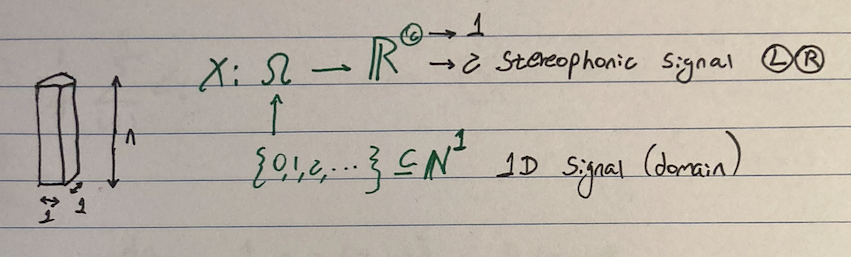 X: Ω → ℝ^ⓒ → 1
→ 2 Stereophonic signal Ⓛ Ⓡ
↑
{0,1,2,...} ⊆ ℕ^1 1D Signal (domain)
1 1